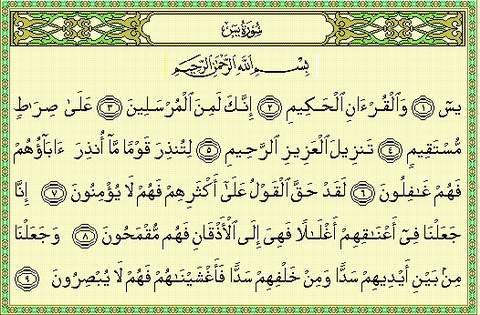 سُورَةُ يسٓ
بِسْمِ اللَّهِ الرَّحْمَٰنِ الرَّحِيمِ
يسٓ ۝١ وَالْقُرْءَانِ الْحَكِيمِ ۝٢ إِنَّكَ لَمِنَ الْمُرْسَلِينَ ۝٣ عَلَىٰ صِرَاطٍ
مُّسْتَقِيمٍ ۝٤ تَنزِيلَ الْعَزِيزِ الرَّحِيمِ ۝٥ لِتُنذِرَ قَوْمًا مَّآ أُنذِرَ ءَابَآؤُهُمْ
فَهُمْ غَٰفِلُونَ ۝٦ لَقَدْ حَقَّ الْقَوْلُ عَلَىٰٓ أَكْثَرِهِمْ فَهُمْ لَا يُؤْمِنُونَ ۝٧ إِنَّا
جَعَلْنَا فِىٓ أَعْنَٰقِهِمْ أَغْلَٰلًا فَهِىَ إِلَى الْأَذْقَانِ فَهُم مُّقْمَحُونَ ۝٨ وَجَعَلْنَا
مِنۢ بَيْنِ أَيْدِيهِمْ سَدًّا وَمِنْ خَلْفِهِمْ سَدًّا فَأَغْشَيْنَٰهُمْ فَهُمْ لَا يُبْصِرُونَ ۝٩